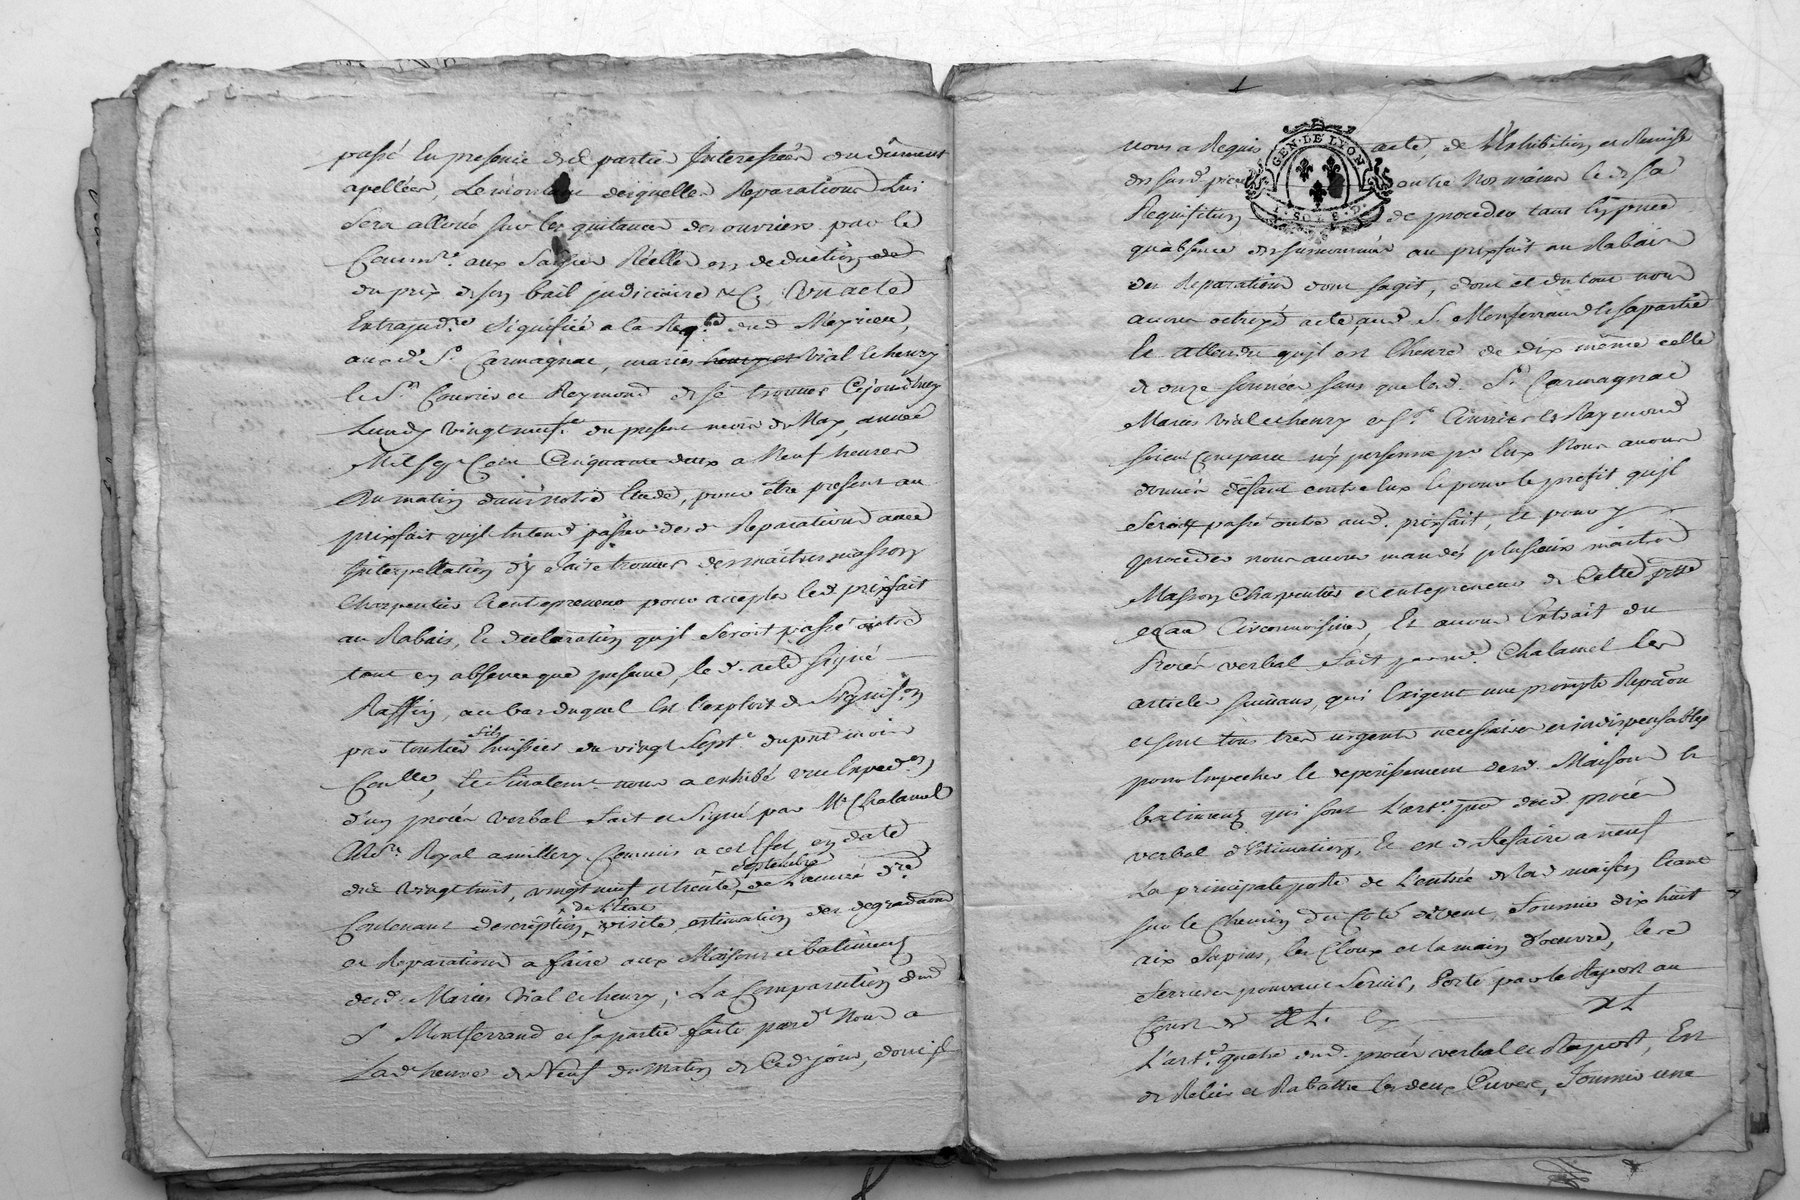 passé En presence des partie Interessées ou dûment
apellées, Le montant desquelles Reparations Lui
sera alloué sur les quitances des ouvriers par le
Comm.re aux Saisies Réelles en deduction
du prix de son bail judiciaire &c, Un acte
Extrajud.re signiffié a la Req.te dud Meyrieu,
aud. S.r Carmagnac, mariés Vial et henry
le S.r Couvrier et Reymond de se trouver Cejourdhuy
Lundy vingt neuf.e du present mois de May, année
Mil sept Cent Cinquante deux a Neuf heures
Du matin dans notre Etude, pour être present au
prixfait qu'jl Entend passer desd Reparations avec
Interpellation d'y faire trouver des maîtres masson
Charpentier et entrepreneur pour accepter led prixfait
au Rabais, Et declaration qu'jl seroit passé outre
tant en absence que presence, le d. acte signé
Raffin, au bas duquel Est l'exploit de Signiff.on
par toustier fils huissier du vingt Sept.e du pnt mois
Con.llé, Et finalem.t nous a exhibé une Exped.on
d'un procès verbal fait et signé par M.e Chalamel
No.re Royal a millery Commis a cet Effet en date
des vingt huit, vingt neuf et trente septembre de L'année d.re
Contenant description de l'Etat, visite, estimation des degradaons
et Reparations a faire aux Maisons et batimens
desd. Mariés Vial et henry; La Comparution dud
S.r Montferrand et sa partie faite pard.t Nous a
La d. heure de Neuf du matin de Ced. jour, dont jl
nous a Requis acte, de L'Exhibition et Remise
des susd. pieces entre Nos mains le de sa
Requisition de proceder tant En presence
qu'absence des surnommés au prixfait au Rabais
des Reparations dont sagit, dont et du tout nous
avons octroyé acte aud S.r Montferrand et sa partie
Et attendu qu'jl est L'heure de dix même celle
de onze sonnée sans que lesd. S.r Carmagnac
Mariés Vial et henry et S.r Couvrier et Raymond
soient Comparu ny personne p.r Eux Nous avons
donné défaut contre Eux Et pour le profit qu'jl
seroit passé outre aud. prixfait, Et pour y
proceder nous avons mandés plusieurs maitres
Masson Charpentier et entrepreneur de Cette psse
et au Circonvoisine, Et avons Extrait du
Procès verbal fait par M.e Chalamel les
articles suivans, qui Exigent une prompte Repaon
et sont tous tres urgents necessaires et indispensables
pour Empecher le deperissement desd. Maisons et
batimens qui sont L'art.e pmo dud procès
verbal d'Estimation, Et est de Refaire a neuf
La principale porte de L'entrée de lad maison Etant
sur le Chemin du Coté de vent, Fournir dix huit
aix sapins, les Cloux et la main d'oeuvre, les
serrures pouvant servir, Porté par le Raport au
Cout de xL. Cy xL
L'art.e quatre dud. procès verbal et Raport, Est
de Relier et Rabattre les deux Cuves, Fournir une
GEN·DE LYON